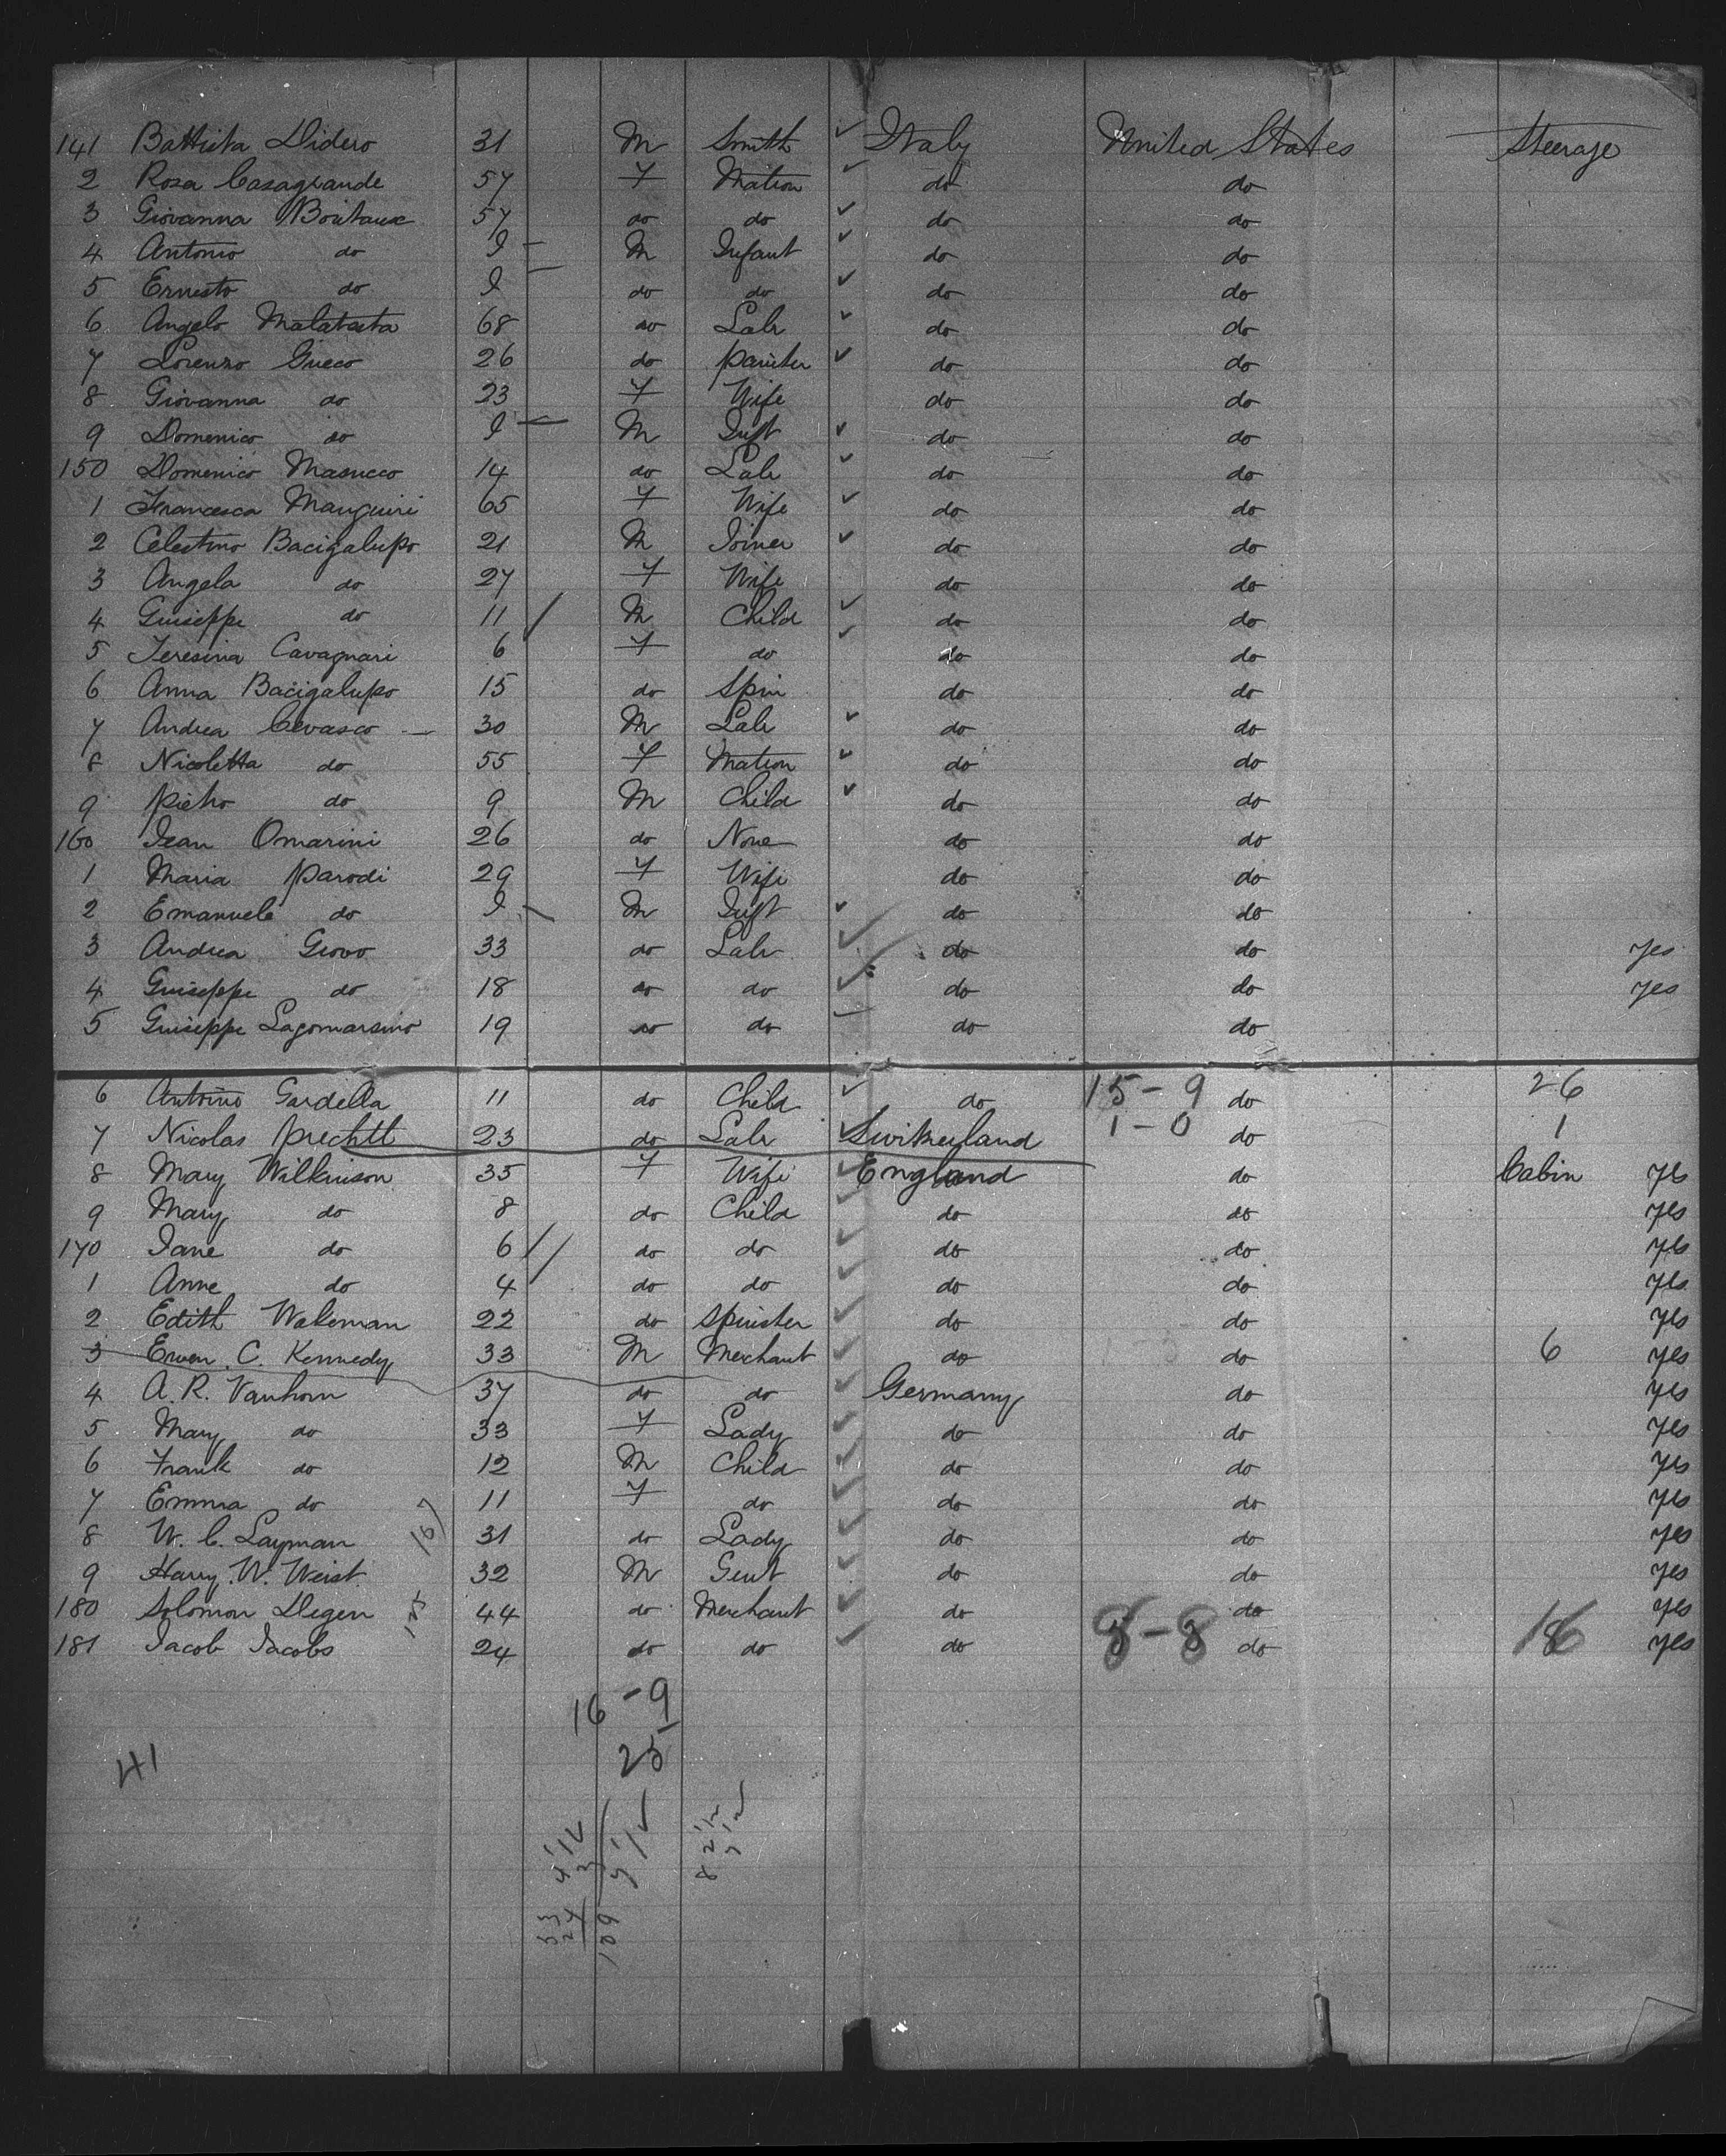 141 Battista Didero 31 M Smith ✓ Italy United States Steerage
2 Rosa Casagrande 57 F Matron ✓ do do
3 Giovanna 57 do do ✓ do do
4 Antonio do I – M Infant ✓ do do
5 Ernesto do I – do do ✓ do do
6 Angelo Malatesta 68 do Labr ✓ do do
7 Lorenzo Grieco 26 do painter ✓ do do
8 Giovanna do 23 F Wife do do
9 Domenico do I – M Inft ✓ do do
150 Domenico Masucco 14 do Labr ✓ do do
1 Francesca Manguini 65 F Wife ✓ do do
2 Celestino Bacigalupo 21 M Joiner ✓ do do
3 Angela do 27 F Wife do do
4 Guiseppe do 11 / M Child ✓ do do
5 Teresina Cavagnari 6 F do ✓ do do
6 Anna Bacigalupo 15 do Spin do do
7 Andrea Cevasco – 30 M Labr ✓ do do
8 Nicoletta do 55 F Matron ✓ do do
9 Pietro do 9 M Child ✓ do do
160 Jean Omarini 26 do None do do
1 Maria Parodi 29 F Wife do do
2 Emanuele do I – M Inft ✓ do do
3 Andrea Giovo 33 do Labr ✓ do do yes
4 Guiseppe do 18 do do ✓ do do yes
5 Guiseppe Lagomarsino 19 do do do do
6 Antonio Gardella 11 do Child ✓ do 15 – 9 do 26
7 Nicolas Prechtl 23 do Labr ✓ Switzerland 1 – 0 do 1
8 Mary Wilkinson 35 F Wife ✓ England do Cabin yes
9 Mary do 8 do Child ✓ do do yes
170 Jane do 6 // do do ✓ do do yes
1 Anne do 4 do do ✓ do do yes
2 Edith Wakeman 22 do Spinster ✓ do do yes
3 Ewen C. Kennedy 33 M Merchant ✓ do do 6 yes
4 A. R. Vanhorn 37 do do ✓ Germany do yes
5 Mary do 33 F Lady ✓ do do yes
6 Frank do 12 M Child ✓ do do yes
7 Emma do 11 F do ✓ do do yes
8 W. C. Layman 31 do Lady ✓ do do yes
9 Harry W. Weist 32 M Gent ✓ do do yes
180 Solomon Degen 44 do Merchant ✓ do do yes
181 Jacob Jacobs 24 do do ✓ do 8 – 8 do yes
16 – 9
25
41
109